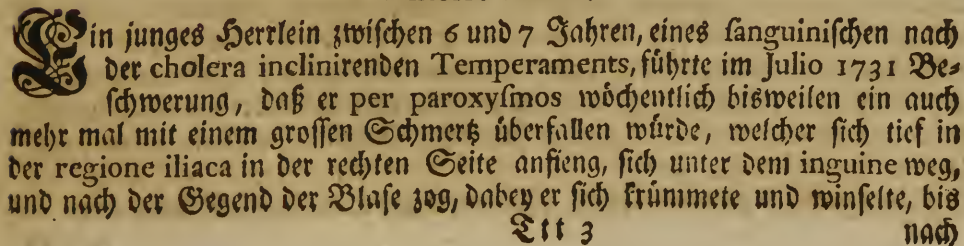 Ein junges Herrlein zwischen 6 und 7 Jahren, eines sanguinischen nach
der cholera inclinirenden Temperaments, führte im Julio 1731 Be-
schwerung, daß er per paroxysmos wöchentlich bisweilen ein auch
mehr mal mit einem grossen Schmertz überfallen würde, welcher sich tief in
der regione iliaca in der rechten Seite anfieng, sich unter dem inguine weg,
und nach der Gegend der Blase zog, dabey er sich krümmete und winselte, bis
Ttt 3 nach